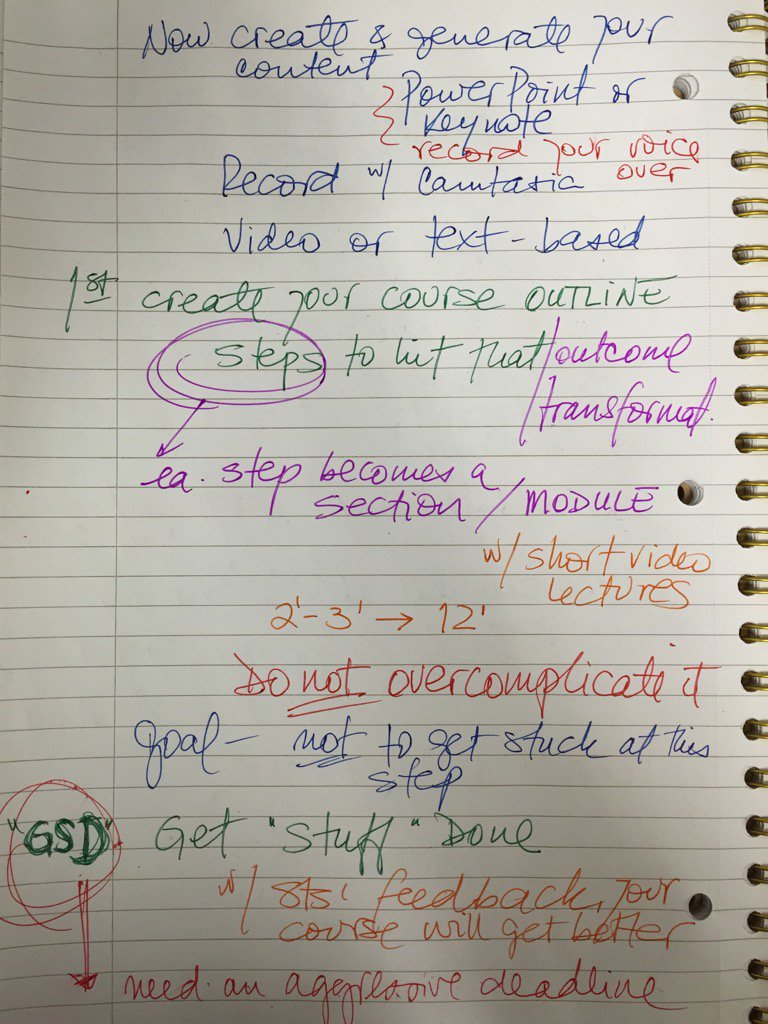 Now create & generate your
content
PowerPoint or
Keynote
record your voice
over
Record w/ Camtasia
Video or text-based
1st create your course OUTLINE
steps to hit that/outcome
/transformat.
ea. step becomes a
section / MODULE
w/ short video
lectures
2'-3' → 12'
Do not overcomplicate it
goal - not to get stuck at this
step
"GSD" Get "Stuff" Done
w/ sts' feedback, your
course will get better
need an aggressive deadline